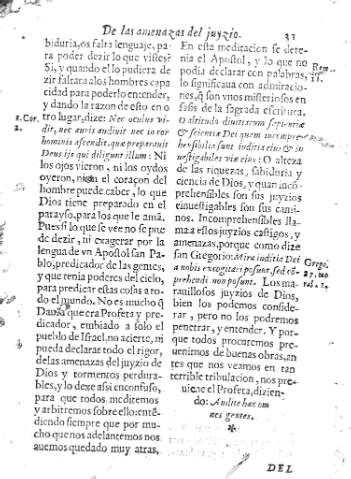 De las amenazas del juyzio. 33
biduria, os falta lenguaje, pa-
ra poder dezir lo que vistes?
Si, y quando el lo pudiera de
zir faltara a los hombres capa
cidad para poderlo entender,
y dando la razon de esto en o
tro lugar, dize: Nec oculus vi-
dit, nec auris audiuit nec in cor
hominis ascendit. quæ præparauit
Deus ijs qui diligunt illum: Ni
los ojos vieron, ni los oydos
oyeron, ni en el coraçon del
hombre puede caber, lo que
Dios tiene preparado en el
parayso, para los que le amã.
Pues si lo que se vee no se pue
de dezir, ni exagerar por la
lengua de vn Apostol san Pa-
blo, predicador de las gentes,
y que tenia poderes del cielo,
para predicar estas cosas a to-
do el mundo. No es mucho q̃
Dauid que era Profeta y pre-
dicador, embiado a solo el
pueblo de Israel, no acierte, ni
pueda declarar todo el rigor,
de las amenazas del juyzio de
Dios y tormentos perdura-
bles, y lo dexe assi en confuso,
para que todos meditemos
y arbitremos sobre ello: entẽ-
diendo siempre que por mu-
cho que nos adelantemos nos
auemos quedado muy atras,
1. Cor.
2.
En esta meditacion se dete-
nia el Apostol, y lo que no
podia declarar con palabras,
lo significaua con admiracio-
nes, q̃ son vnos misteriosos en
fasis de la sagrada escritura.
O altitudo diuitiarum sapientiæ
& scientiæ Dei quam incompre-
hensibilia sunt iuditia eius & in
uestigabiles viæ eius: O alteza
de las riquezas, sabiduria y
ciencia de Dios, y quan incõ-
prehensibles son sus juyzios
e inuestigables sus cami-
nos. Incomprehensibles lla-
ma a estos juyzios castigos, y
amenazas, porque como dize
san Gregorio: Mira iuditia Dei
a nobis excogitari possunt, sed cõ-
prehendi non possunt. Los ma-
rauillosos juyzios de Dios,
bien los podemos conside-
rar, pero no los podremos
penetrar, y entender. Y por-
que todos procuremos pre-
uenirnos de buenas obras, an
tes que nos veamos en tan
terrible tribulacion, nos pre-
uiene el Profeta, dizien-
do: Audite hæc om
nes gentes.
Rom.
11.
Grego.
27. mo
DEL